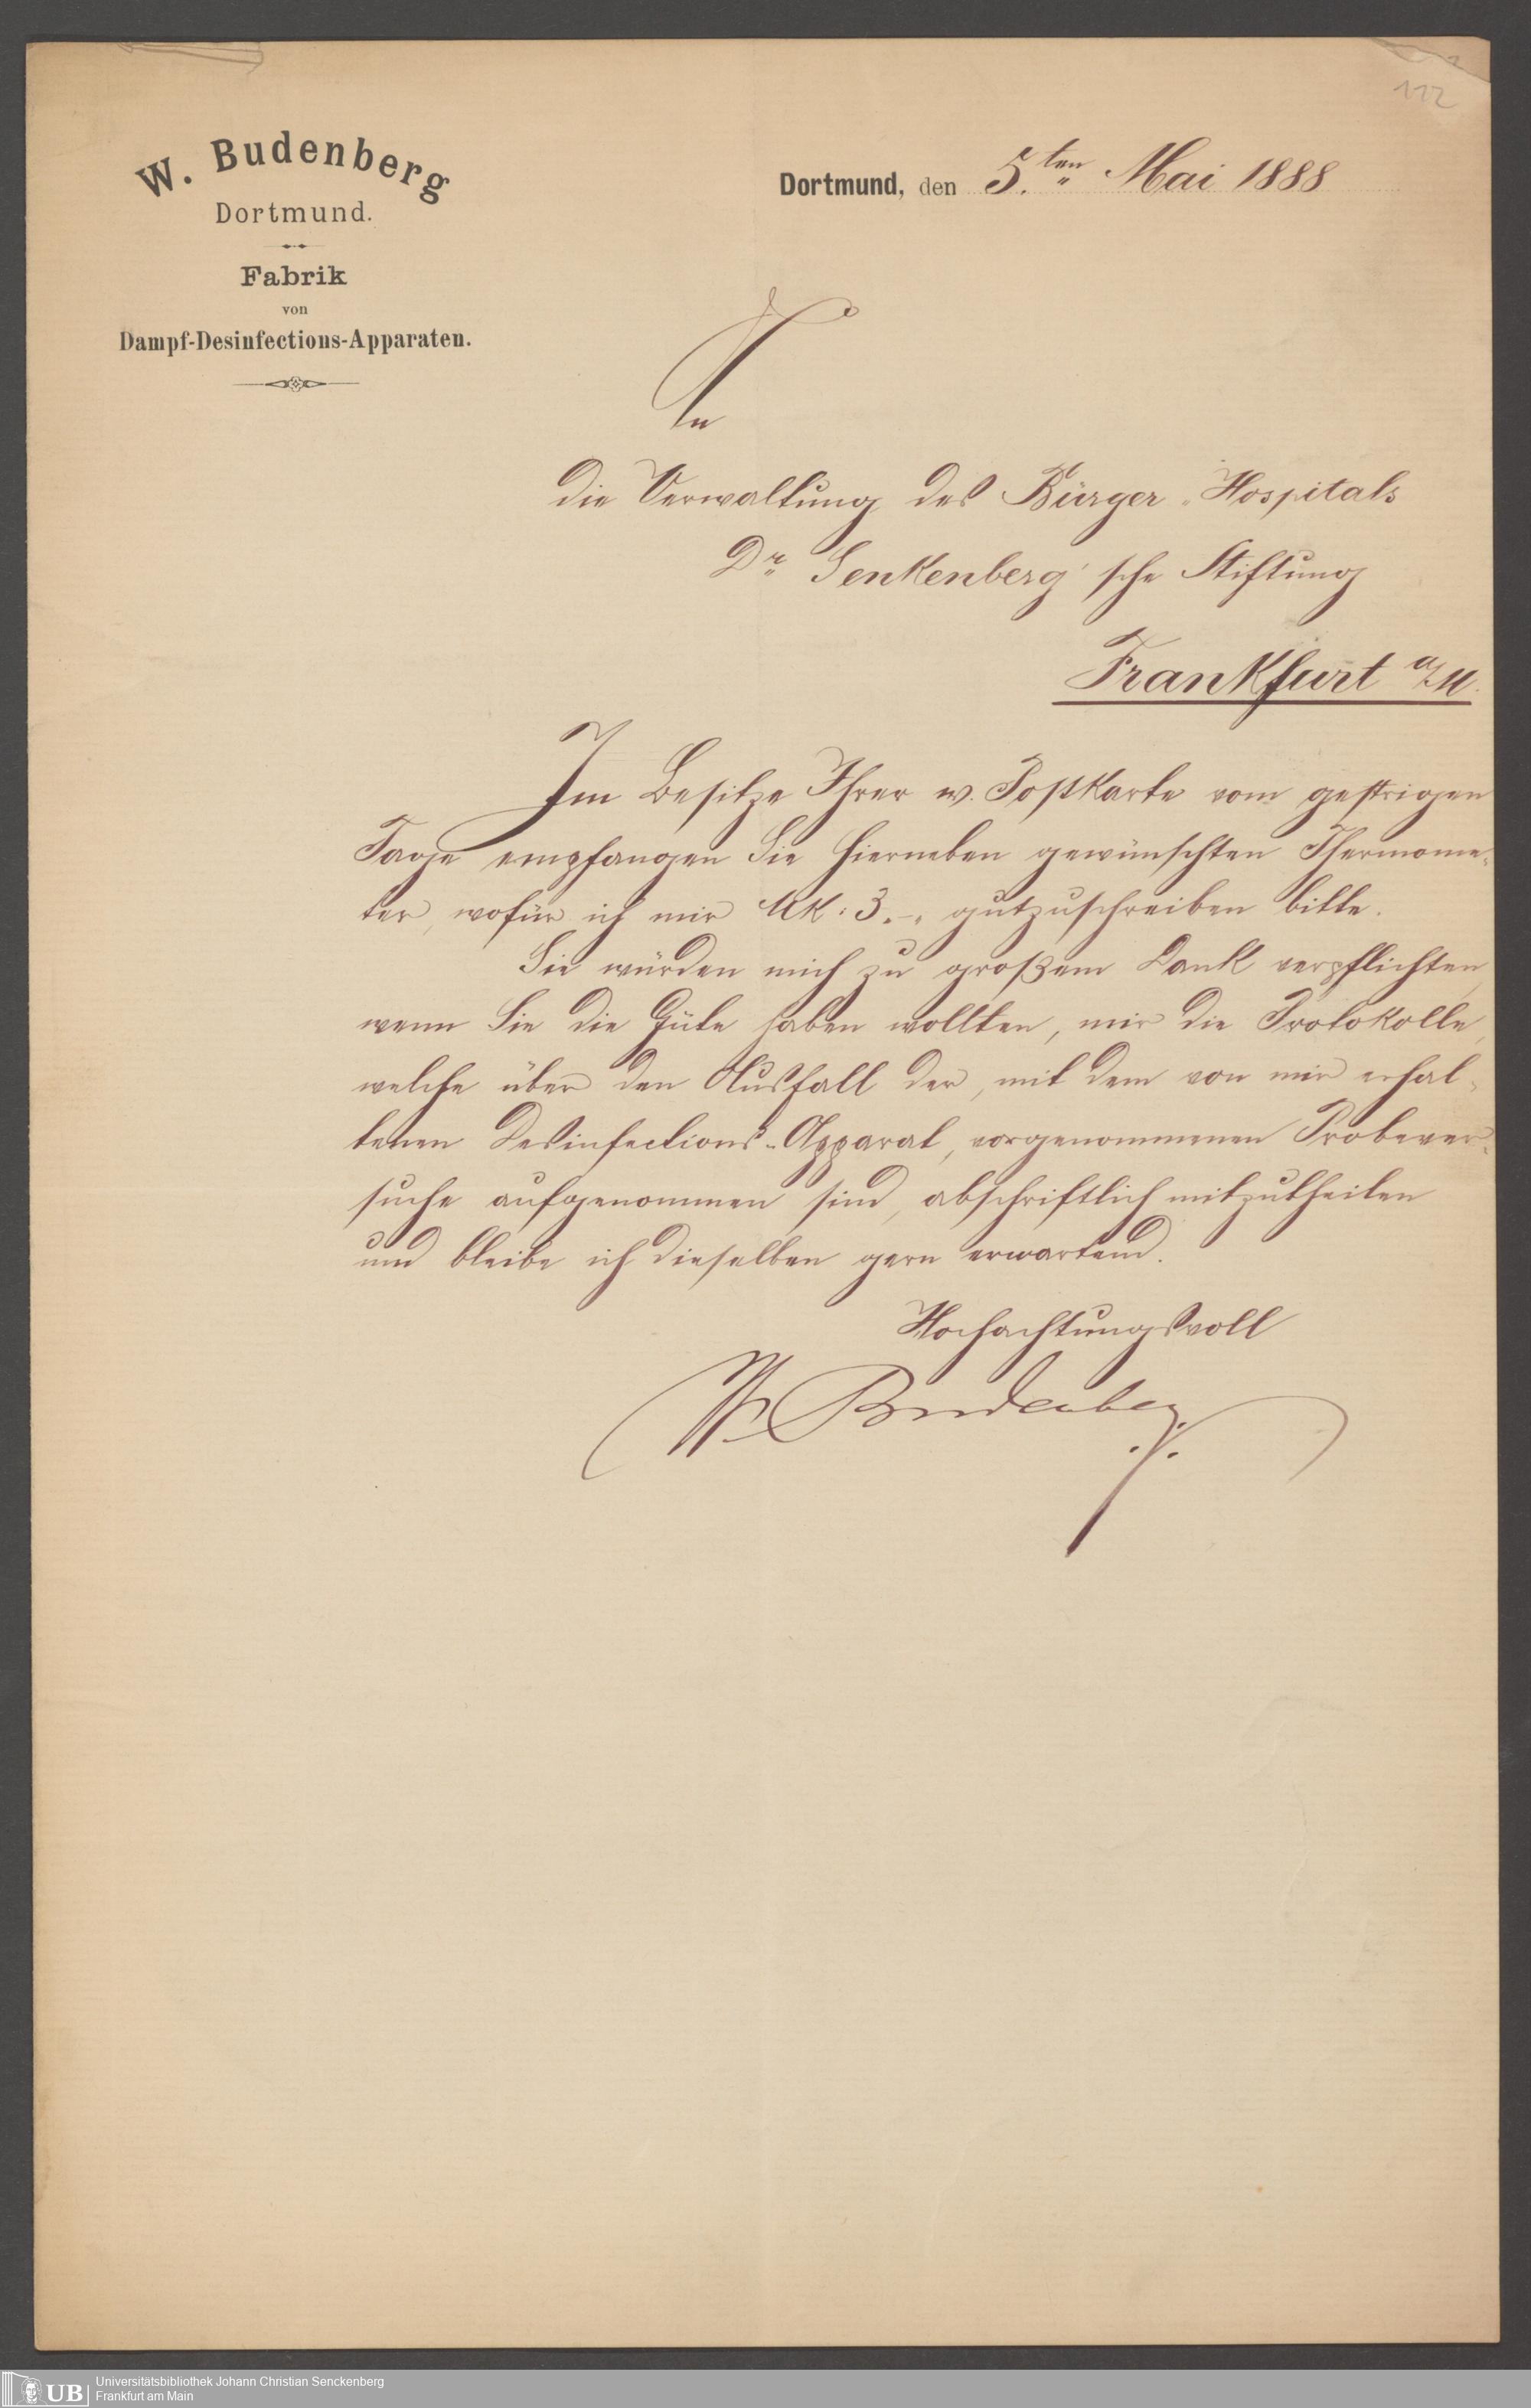 112
W. Budenberg
Dortmund.
Fabrik
von
Dampf-Desinfections-Apparaten.
Dortmund, den 5.ten Mai 1888
An
die Verwaltung des Bürger-Hospitals
Dr Senkenberg'sche Stiftung
Frankfurt a/M.
Im Besitze Ihrer w. Postkarte vom gestrigen
Tage empfangen Sie hierneben gewünschten Thermome-
ter, wofür ich mir Mk: 3.-. gutzuschreiben bitte.
Sie würden mich zu großem Dank verpflichten,
wenn Sie die Güte haben wollten, mir die Protokolle,
welche über den Ausfall der, mit dem von mir erhal-
tenen Desinfections-Apparat, vorgenommenen Probever-
suche aufgenommen sind, abschriftlich mitzutheilen
und bleibe ich dieselben gern erwartend.
Hochachtungsvoll
W Budenberg
UB
Universitätsbibliothek Johann Christian Senckenberg
Frankfurt am Main